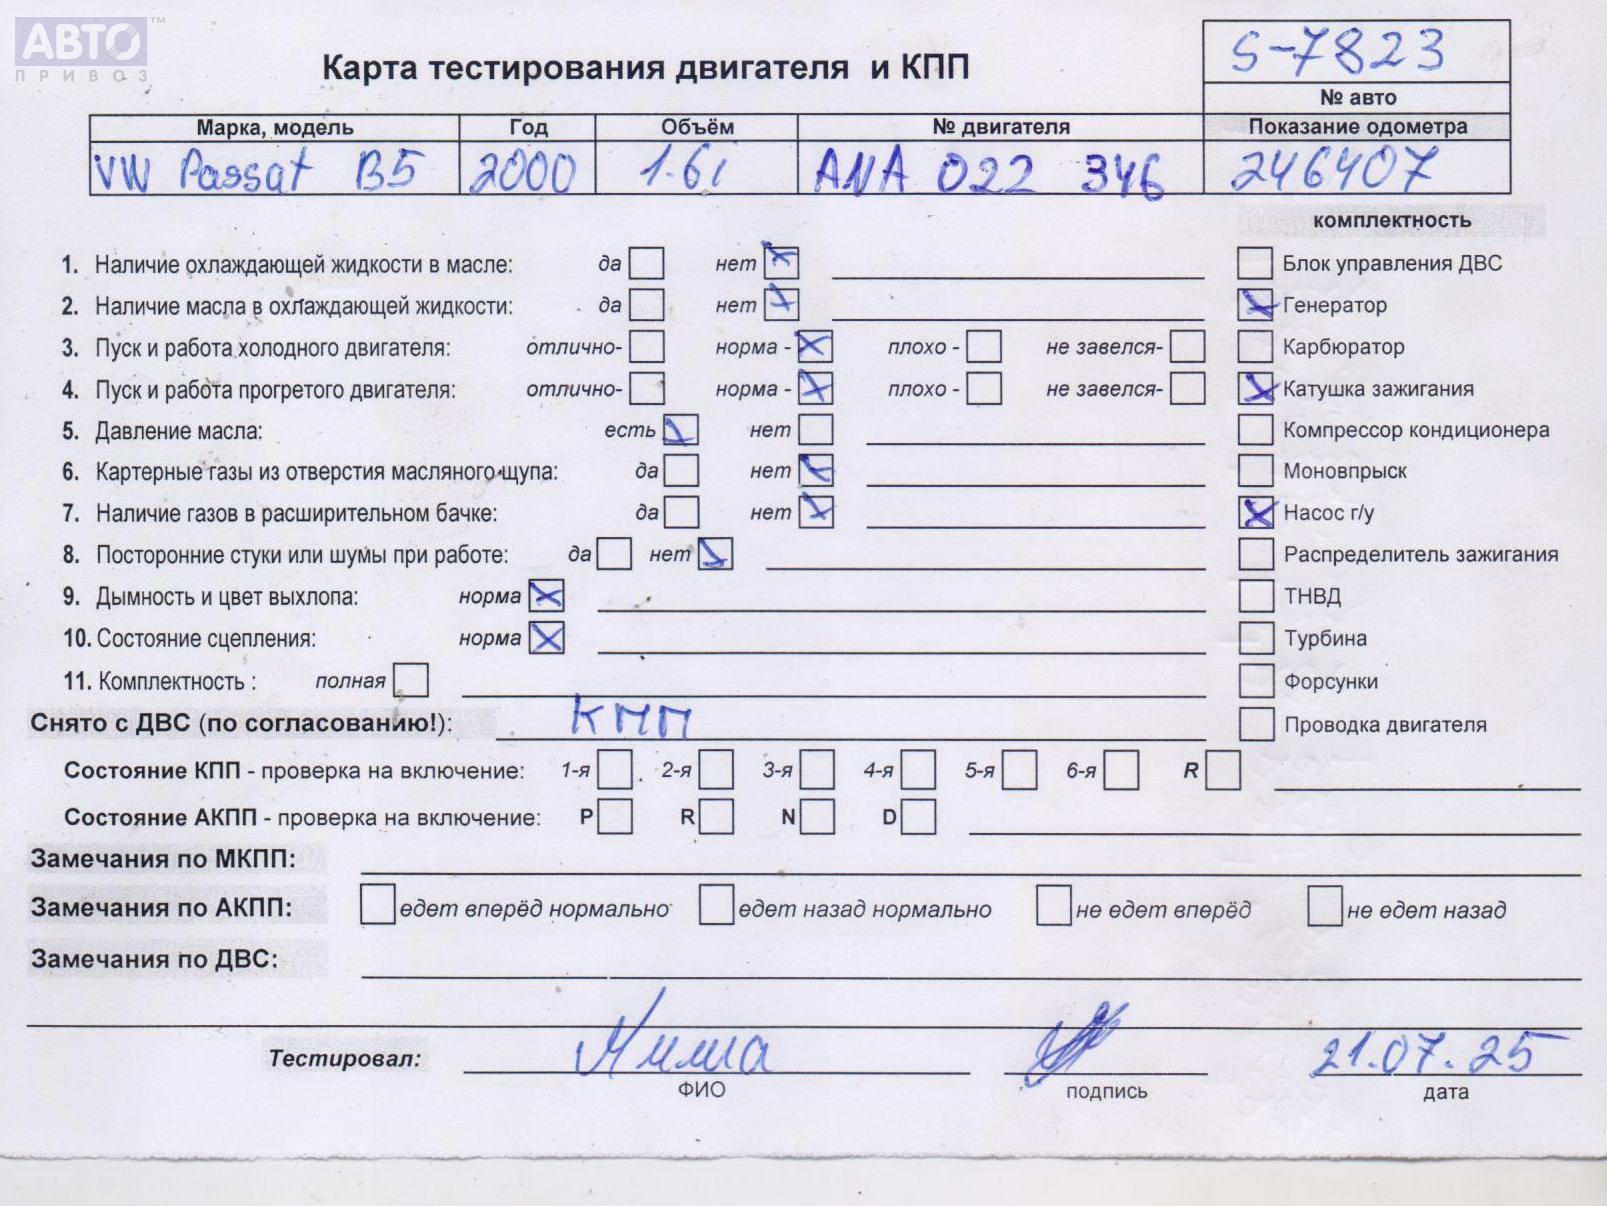 АВТО™
ПРИВОЗ
Карта тестирования двигателя и КПП
S-7823
№ авто
Марка, модель Год Объём № двигателя Показание одометра
VW Passat B5 2000 1.6i ANA 022 346 246407
комплектность
1. Наличие охлаждающей жидкости в масле: да нет Блок управления ДВС
2. Наличие масла в охлаждающей жидкости: да нет Генератор
3. Пуск и работа холодного двигателя: отлично- норма - плохо - не завелся- Карбюратор
4. Пуск и работа прогретого двигателя: отлично- норма - плохо - не завелся- Катушка зажигания
5. Давление масла: есть нет Компрессор кондиционера
6. Картерные газы из отверстия масляного щупа: да нет Моновпрыск
7. Наличие газов в расширительном бачке: да нет Насос г/у
8. Посторонние стуки или шумы при работе: да нет Распределитель зажигания
9. Дымность и цвет выхлопа: норма ТНВД
10. Состояние сцепления: норма Турбина
11. Комплектность : полная Форсунки
Снято с ДВС (по согласованию!): КПП Проводка двигателя
Состояние КПП - проверка на включение: 1-я 2-я 3-я 4-я 5-я 6-я R
Состояние АКПП - проверка на включение: P R N D
Замечания по МКПП:
Замечания по АКПП: едет вперёд нормально едет назад нормально не едет вперёд не едет назад
Замечания по ДВС:
Тестировал: 21.07.25
ФИО подпись дата